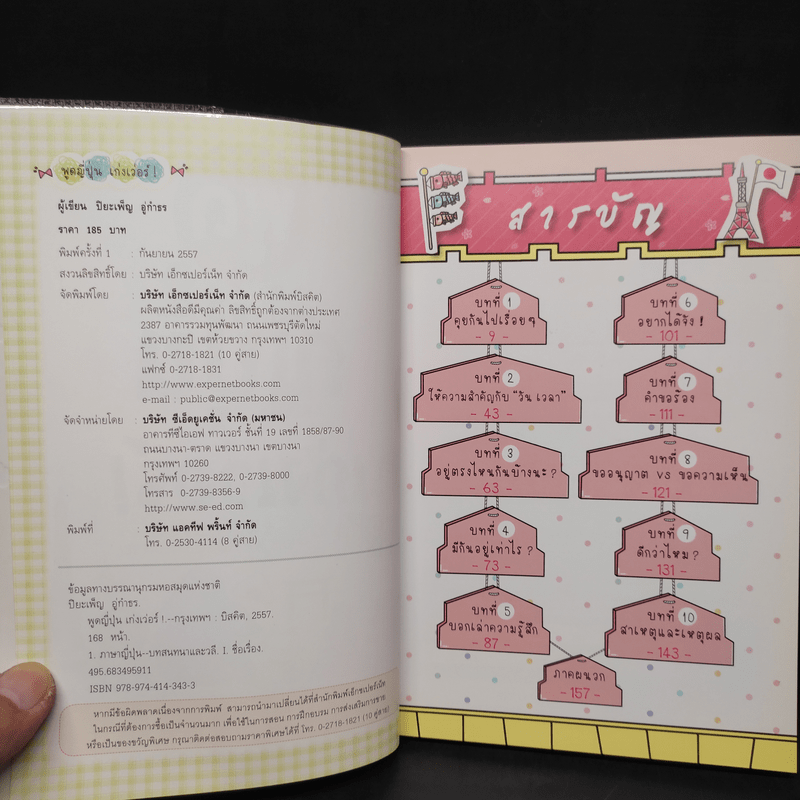 พูดญี่ปุ่น เก่งเว่อร์ !
ผู้เขียน ปิยะเพ็ญ อู่กำธร
ราคา 185 บาท
พิมพ์ครั้งที่ 1 : กันยายน 2557
สงวนลิขสิทธิ์โดย : บริษัท เอ็กซเปอร์เน็ท จำกัด
จัดพิมพ์โดย : บริษัท เอ็กซเปอร์เน็ท จำกัด (สำนักพิมพ์บิสคิต)
ผลิตหนังสือดีมีคุณค่า ลิขสิทธิ์ถูกต้องจากต่างประเทศ
2387 อาคารรวมทุนพัฒนา ถนนเพชรบุรีตัดใหม่
แขวงบางกะปิ เขตห้วยขวาง กรุงเทพฯ 10310
โทร. 0-2718-1821 (10 คู่สาย)
แฟกซ์ 0-2718-1831
http://www.expernetbooks.com
e-mail : public@expernetbooks.com
จัดจำหน่ายโดย : บริษัท ซีเอ็ดยูเคชั่น จำกัด (มหาชน)
อาคารทีซีไอเอฟ ทาวเวอร์ ชั้นที่ 19 เลขที่ 1858/87-90
ถนนบางนา-ตราด แขวงบางนา เขตบางนา
กรุงเทพฯ 10260
โทรศัพท์ 0-2739-8222, 0-2739-8000
โทรสาร 0-2739-8356-9
http://www.se-ed.com
พิมพ์ที่ : บริษัท แอคทีฟ พริ้นท์ จำกัด
โทร. 0-2530-4114 (8 คู่สาย)
ข้อมูลทางบรรณานุกรมหอสมุดแห่งชาติ
ปิยะเพ็ญ อู่กำธร.
พูดญี่ปุ่น เก่งเว่อร์ !.--กรุงเทพฯ : บิสคิต, 2557.
168 หน้า.
1. ภาษาญี่ปุ่น--บทสนทนาและวลี. I. ชื่อเรื่อง.
495.683495911
ISBN 978-974-414-343-3
หากมีข้อผิดพลาดเนื่องจากการพิมพ์ สามารถนำมาเปลี่ยนได้ที่สำนักพิมพ์เอ็กซเปอร์เน็ท
ในกรณีที่ต้องการซื้อเป็นจำนวนมาก เพื่อใช้ในการสอน การฝึกอบรม การส่งเสริมการขาย
หรือเป็นของขวัญพิเศษ กรุณาติดต่อสอบถามราคาพิเศษได้ที่ โทร. 0-2718-1821 (10 คู่สาย)
สารบัญ
บทที่ 1
คุยกันไปเรื่อยๆ
- 9 -
บทที่ 2
ให้ความสำคัญกับ "วัน เวลา"
- 43 -
บทที่ 3
อยู่ตรงไหนกันบ้างนะ ?
- 63 -
บทที่ 4
มีกันอยู่เท่าไร ?
- 73 -
บทที่ 5
บอกเล่าความรู้สึก
- 87 -
บทที่ 6
อยากได้จัง !
- 101 -
บทที่ 7
คำขอร้อง
- 111 -
บทที่ 8
ขออนุญาต vs ขอความเห็น
- 121 -
บทที่ 9
ดีกว่าไหม ?
- 131 -
บทที่ 10
สาเหตุและเหตุผล
- 143 -
ภาคผนวก
- 157 -